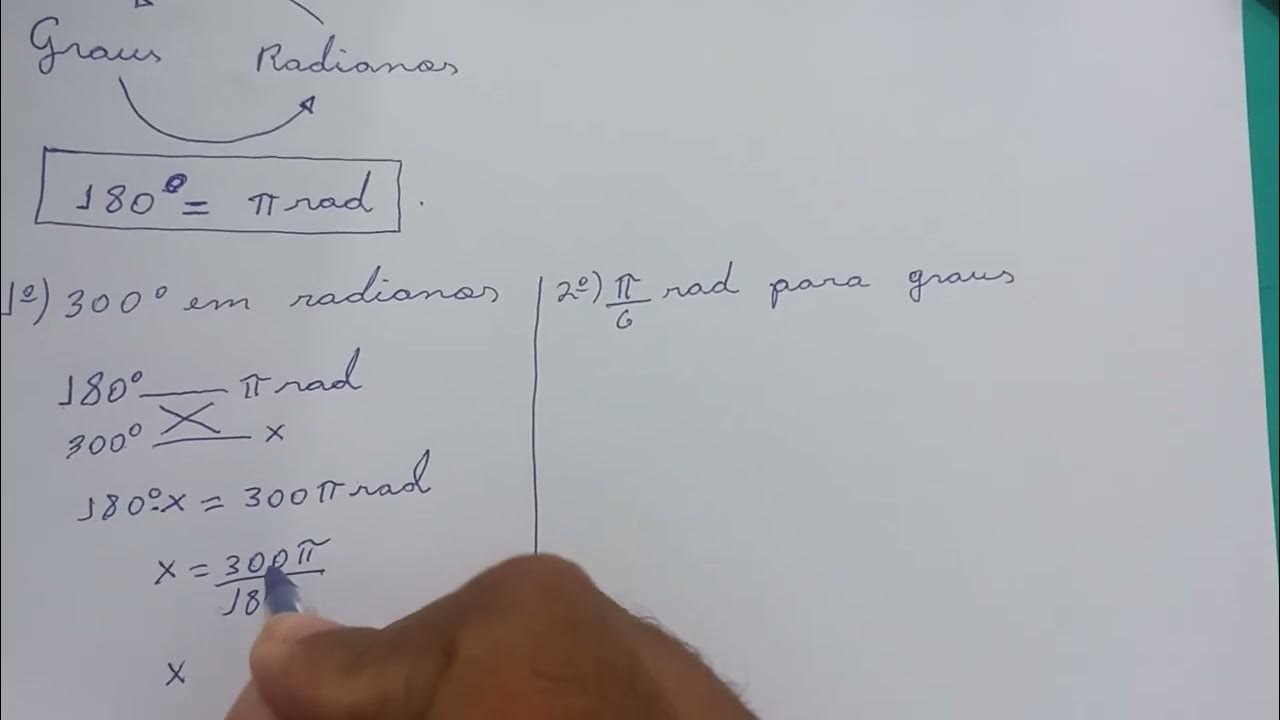 Graus Radianos
180° = π rad.
1º) 300° em radianos
180° π rad
300° x
180°.x = 300 π rad
x = 300 π
18
x
2º) π/6 rad para graus